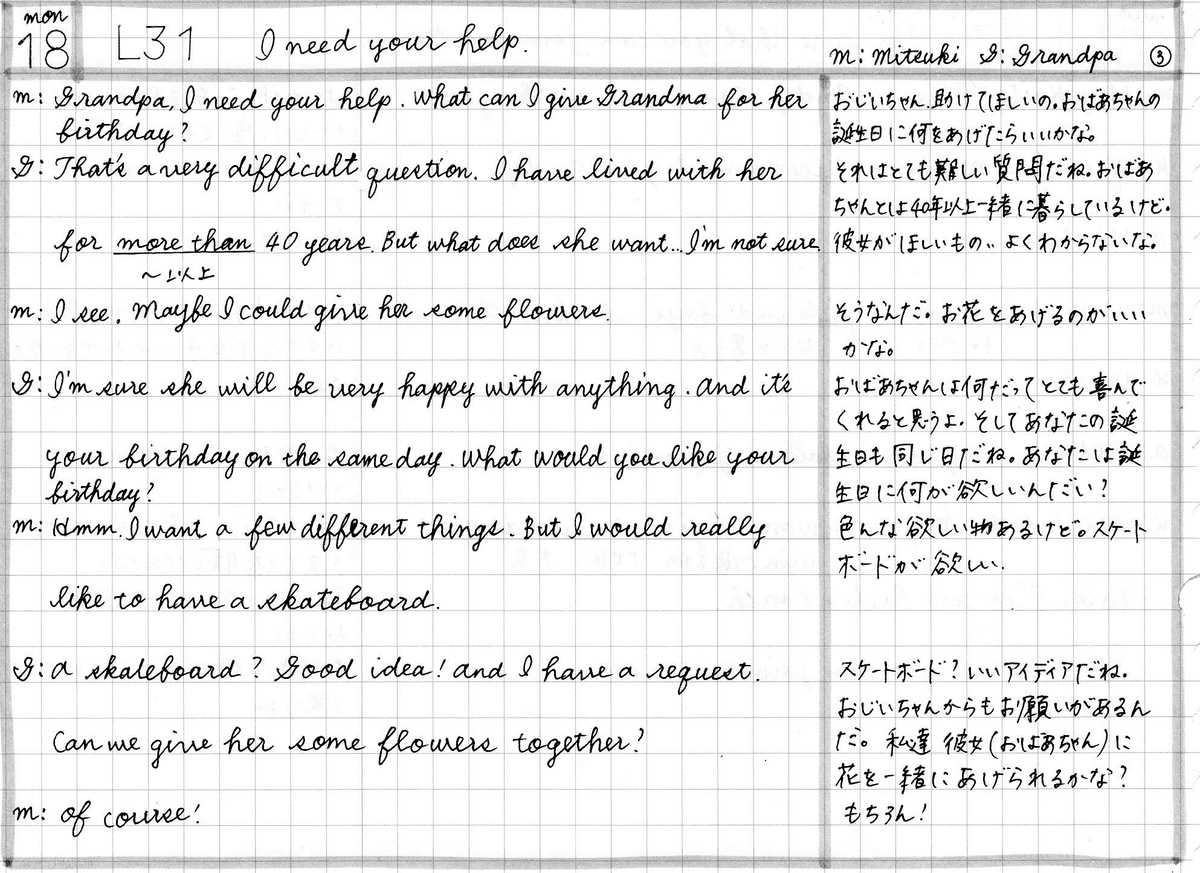 mon
18 L31 I need your help. m: mitsuki G: Grandpa ③
m: Grandpa, I need your help. What can I give Grandma for her
birthday?
G: That's a very difficult question. I have lived with her
for more than 40 years. But what does she want... I'm not sure.
～以上
m: I see. Maybe I could give her some flowers.
G: I'm sure she will be very happy with anything. And it's
your birthday on the same day. What would you like your
birthday?
m: Hmm. I want a few different things. But I would really
like to have a skateboard.
G: A skateboard? Good idea! And I have a request.
Can we give her some flowers together?
m: Of course!
おじいちゃん、助けてほしいの。おばあちゃんの
誕生日に何をあげたらいいかな。
それはとても難しい質問だね。おばあ
ちゃんとは40年以上一緒に暮らしているけど。
彼女がほしいもの..よくわからないな。
そうなんだ。お花をあげるのがいい
かな。
おばあちゃんは何だってとても喜んで
くれると思うよ。そしてあなたの誕
生日も同じ日だね。あなたは誕
生日に何が欲しいんだい？
色んな欲しい物あるけど。スケート
ボードが欲しい.
スケートボード？いいアイディアだね。
おじいちゃんからもお願いがあるん
だ。私達 彼女(おばあちゃん)に
花を一緒にあげられるかな？
もちろん！